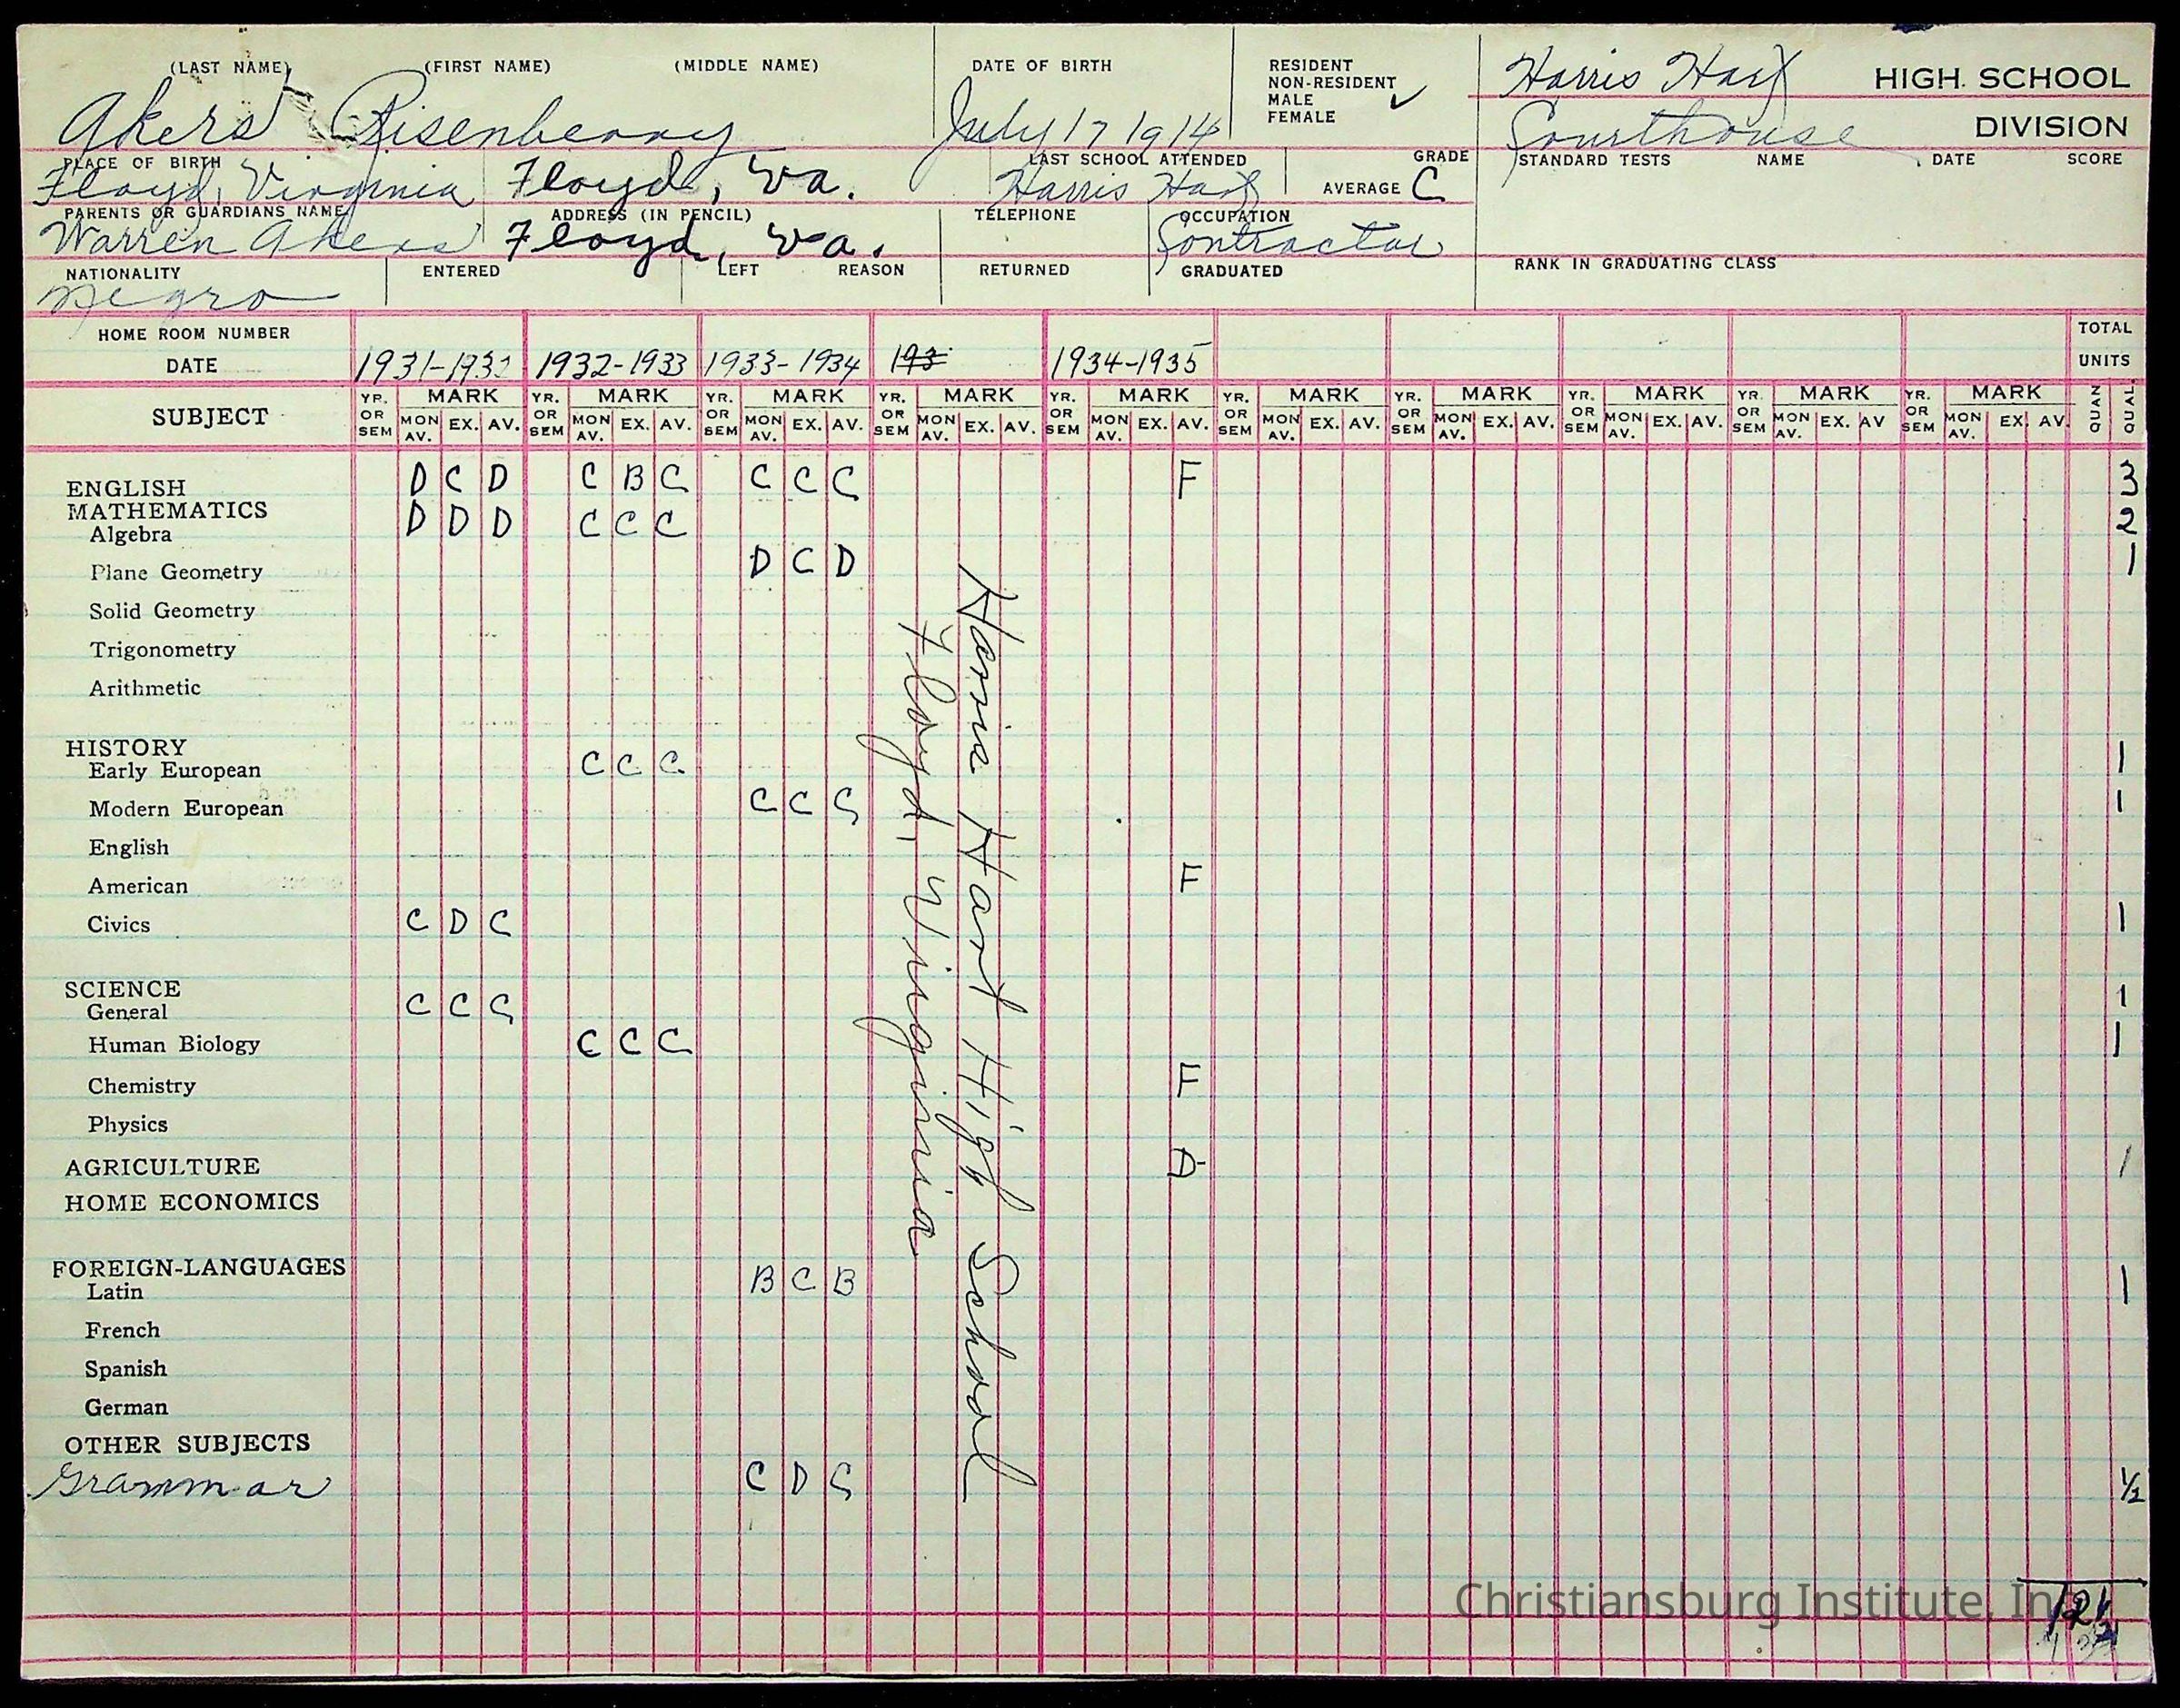 (LAST NAME) (FIRST NAME) (MIDDLE NAME) DATE OF BIRTH RESIDENT Harris Hart HIGH SCHOOL
NON-RESIDENT
MALE ✓
FEMALE
Akers Risenberry July 17 1914 Courthouse DIVISION
PLACE OF BIRTH LAST SCHOOL ATTENDED GRADE STANDARD TESTS NAME DATE SCORE
Floyd, Virginia Floyd, Va. Harris Hart AVERAGE C
PARENTS OR GUARDIANS NAME ADDRESS (IN PENCIL) TELEPHONE OCCUPATION
Warren Akers Floyd, Va. Contractor
NATIONALITY ENTERED LEFT REASON RETURNED GRADUATED RANK IN GRADUATING CLASS
Negro
HOME ROOM NUMBER TOTAL
DATE 1931-1932 1932-1933 1933-1934 193 1934-1935 UNITS
SUBJECT YR. OR SEM MARK MON AV. EX. AV. YR. OR SEM MARK MON AV. EX. AV. YR. OR SEM MARK MON AV. EX. AV. YR. OR SEM MARK MON AV. EX. AV. YR. OR SEM MARK MON AV. EX. AV. YR. OR SEM MARK MON AV. EX. AV. YR. OR SEM MARK MON AV. EX. AV. YR. OR SEM MARK MON AV. EX. AV. YR. OR SEM MARK MON AV. EX. AV YR. OR SEM MARK MON AV. EX. AV. QUAN QUAL.
ENGLISH D C D C B C C C C F 3
MATHEMATICS
Algebra D D D C C C 2
Plane Geometry D C D 1
Solid Geometry
Trigonometry
Arithmetic
HISTORY
Early European C C C 1
Modern European C C C 1
English
American F
Civics C D C 1
SCIENCE
General C C C 1
Human Biology C C C 1
Chemistry F
Physics
AGRICULTURE D- 1
HOME ECONOMICS
FOREIGN-LANGUAGES
Latin B C B 1
French
Spanish
German
OTHER SUBJECTS
Grammar C D C ½
Harris Hart High School
Floyd, Virginia
Christiansburg Institute, Inc.